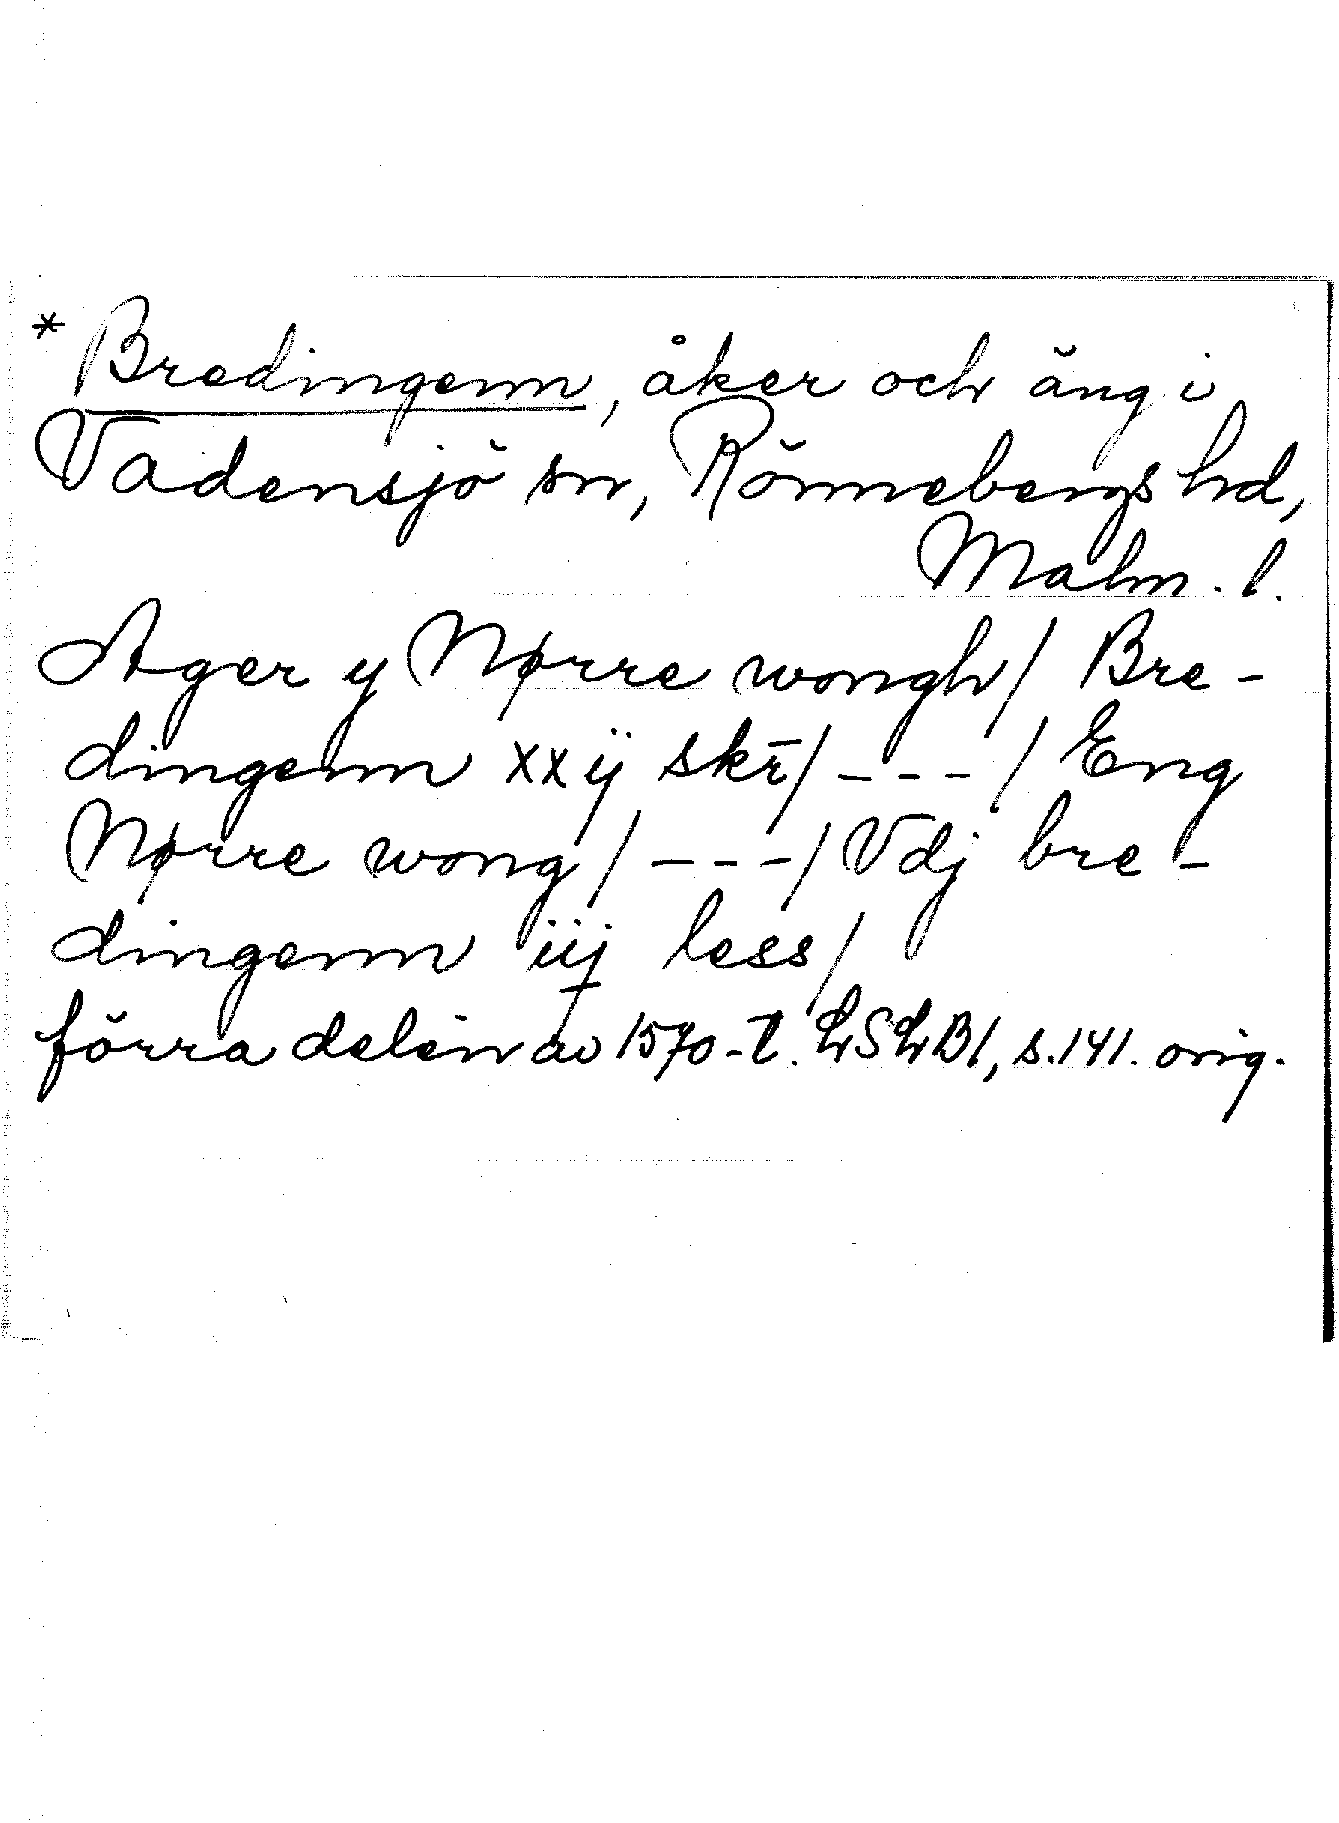 * Bredingenn, åker och äng i
Vadensjö sn, Rönnebergs hd,
Malm. l.
Ager y Nørre wongh/ Bre-
dingenn xxij skr̄/ - - - / Eng
Nørre wong/ - - - / Vdj bre-
dingenn iij less/
förra delen av 1570-t. LSLB1, s. 141. orig.